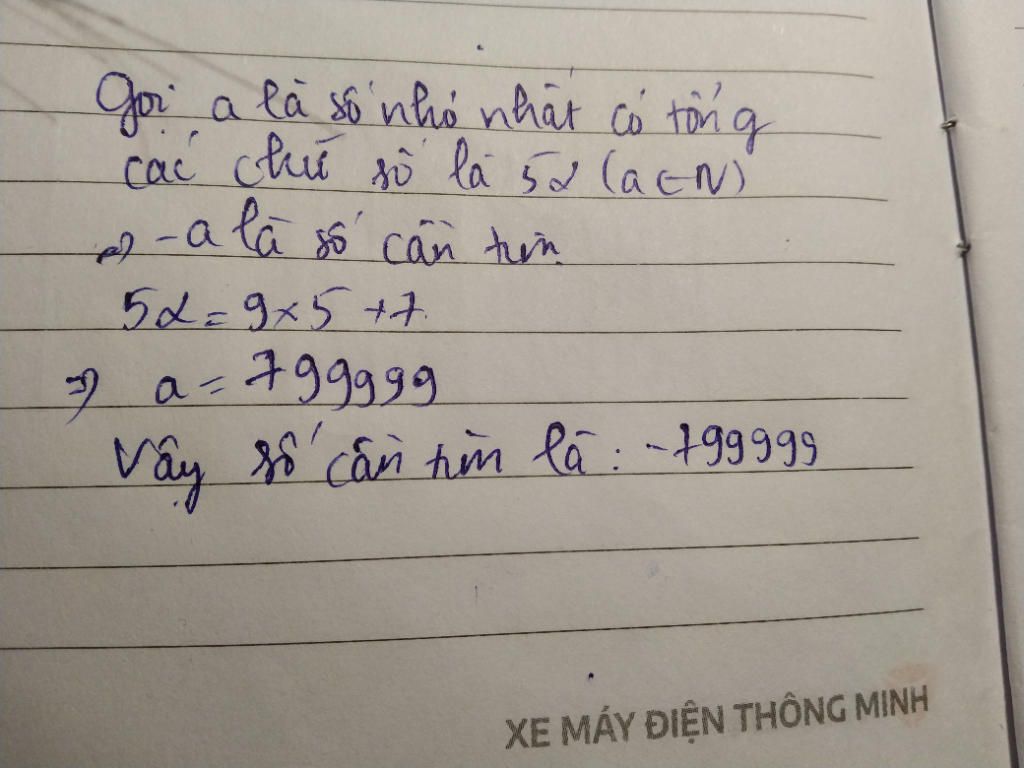 Gọi a là số nhỏ nhất có tổng
các chữ số là 52 (a ∈ N)
=> -a là số cần tìm.
52 = 9x5 +7.
=> a = 799999
Vậy số cần tìm là: -799999
XE MÁY ĐIỆN THÔNG MINH